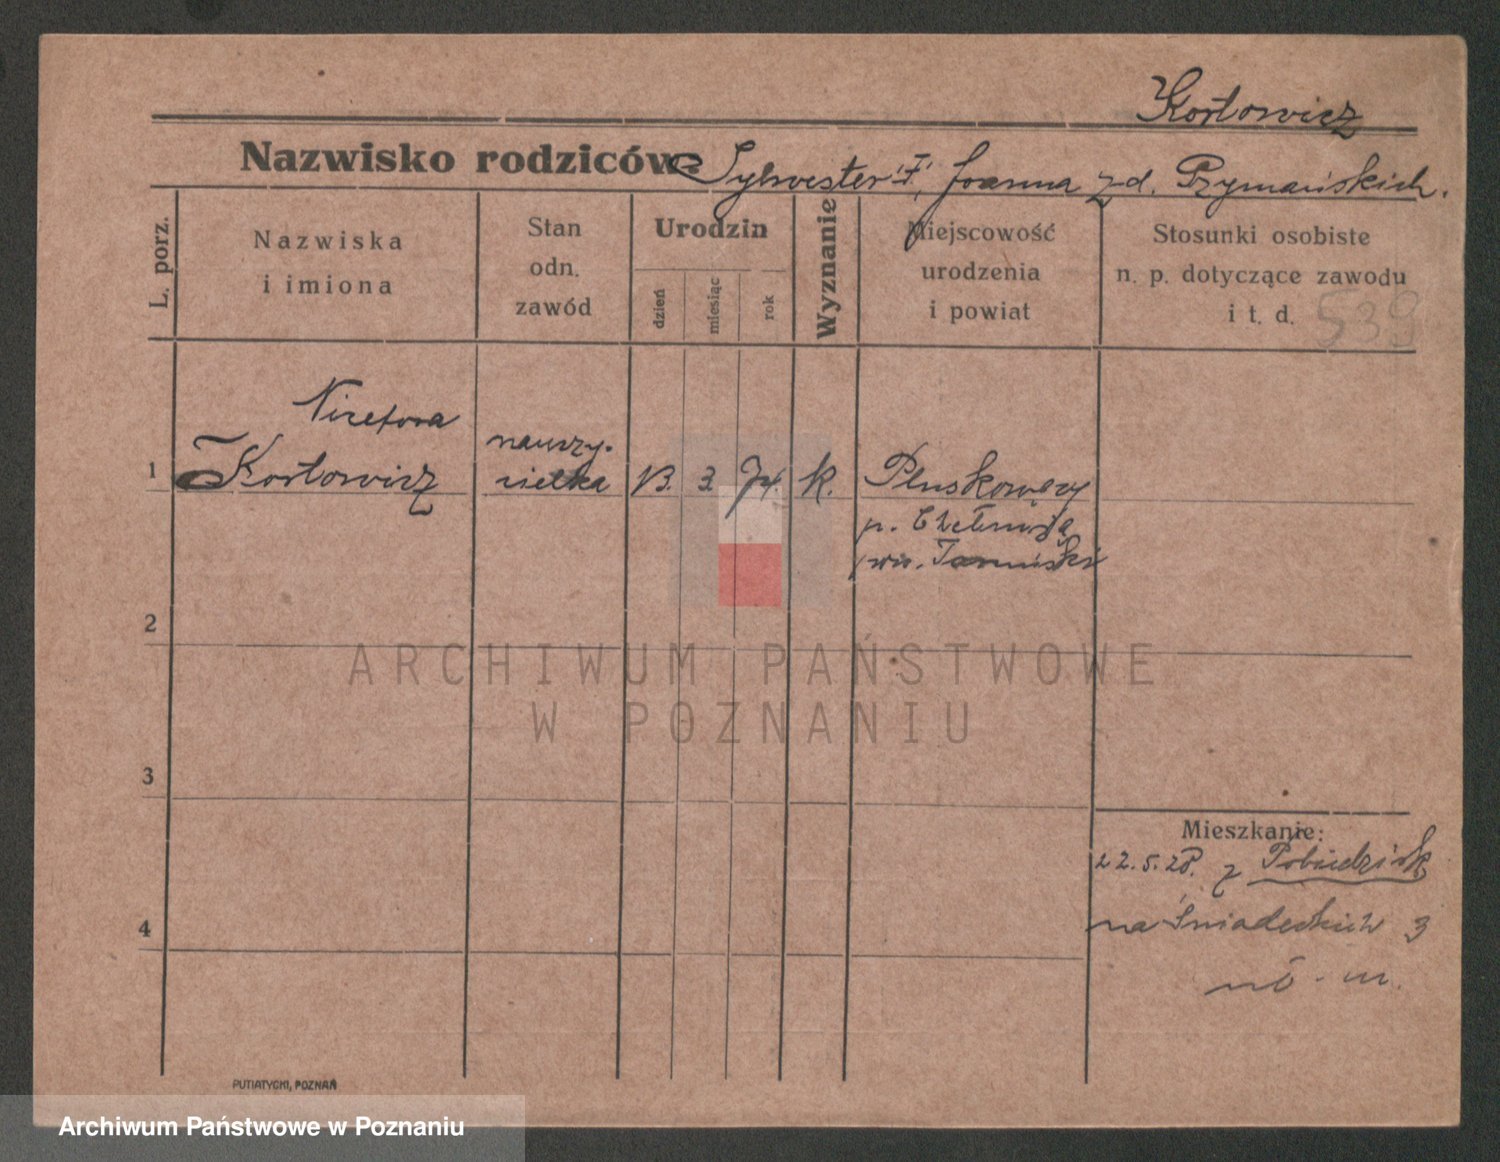 Kortowicz
Nazwisko rodziców: Sylwester "I", Joanna zd. Przymańskich.
L. porz.
Nazwiska
i imiona
Stan
odn.
zawód
Urodzin
dzień
miesiąc
rok
Wyznanie
Miejscowość
urodzenia
i powiat
Stosunki osobiste
n. p. dotyczące zawodu
i t. d.
539
1
Kortowicz
nauczy-
cielka
13. 3. 74
k.
Pluskowęsy
p. Chełmża
2
ARCHIWUM PAŃSTWOWE
W POZNANIU
3
4
Mieszkanie:
22.5.28. z Pobiedzisk
na Śniadeckich 3
PUTIATYCKI, POZNAŃ
Archiwum Państwowe w Poznaniu